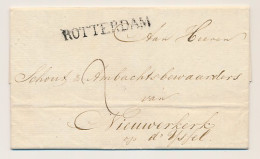 ROTTERDAM
Aan Heeren
Schout & Ambachtsbewaarders
van
Nieuwerkerk
op d' Yssel